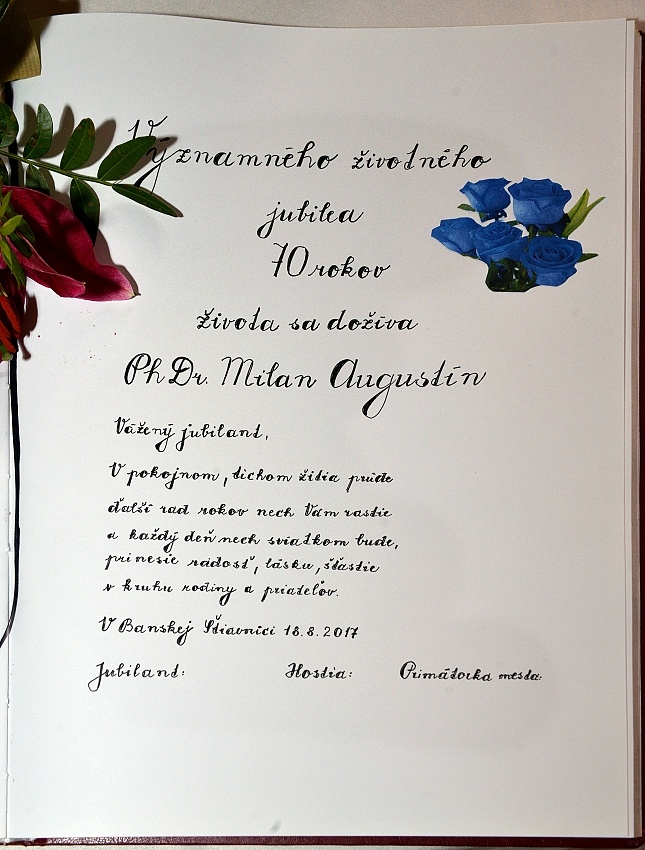 Významného životného
jubilea
70 rokov
života sa dožíva
PhDr. Milan Augustín
Vážený jubilant,
V pokojnom, tichom žitia prúde
ďalší rad rokov nech Vám rastie
a každý deň nech sviatkom bude,
prinesie radosť, lásku, šťastie
v kruhu rodiny a priateľov.
V Banskej Štiavnici 18.8.2017
Jubilant: Hostia: Primátorka mesta: